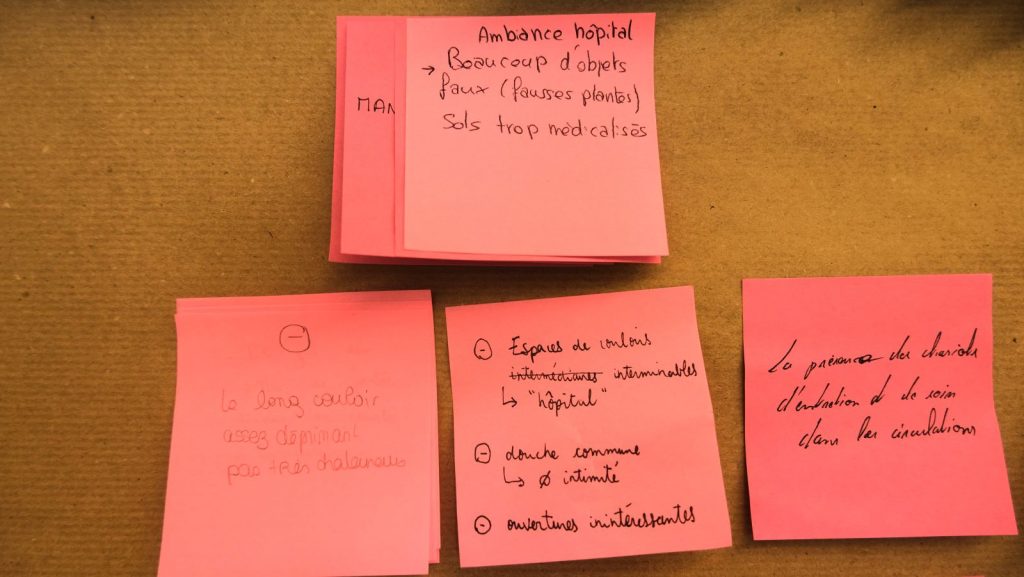 Ambiance hôpital
→ Beaucoup d'objets
faux (fausses plantes)
Sols trop médicalisés
MAN
⊖
Le long couloir
assez déprimant
pas très chaleureux
⊖ Espaces de couloirs
intermédiaires interminables
↳ "hôpital"
⊖ douche commune
↳ Ø intimité
⊖ ouvertures inintéressantes
La présence des chariots
d'entretien et de soin
dans les circulations